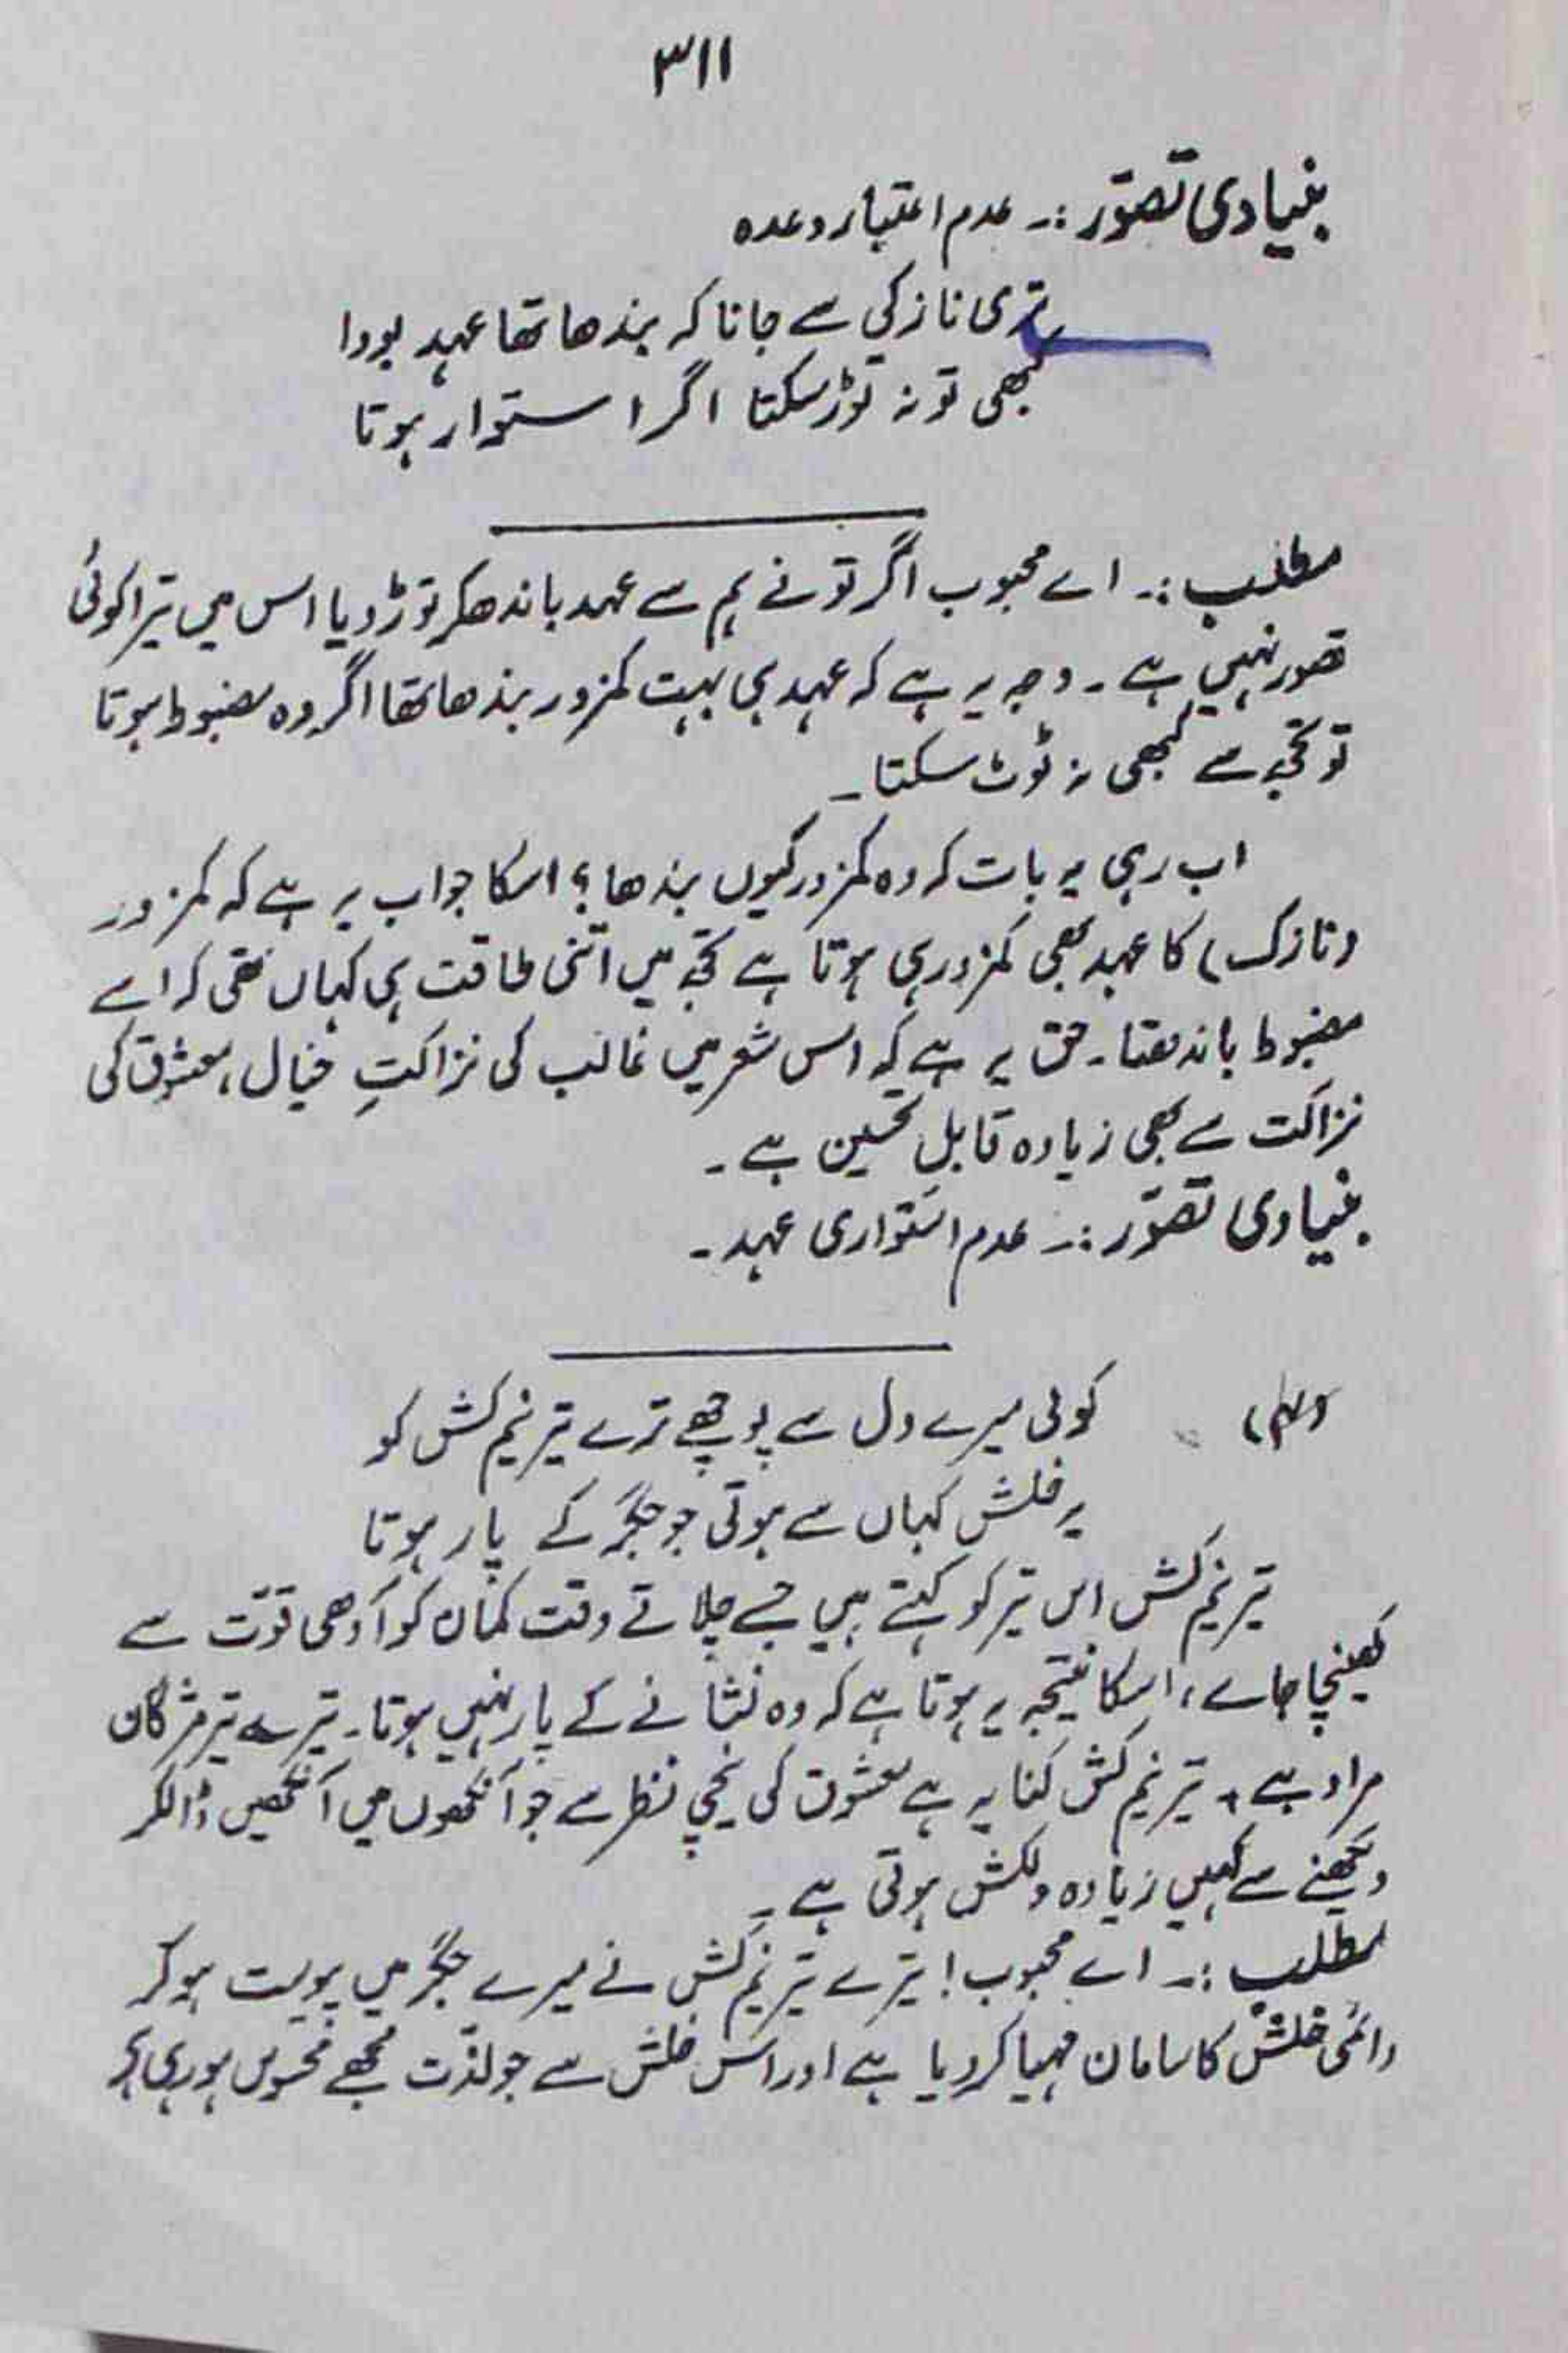 ۳۱۱
بنیادی تصوّر :۔ عدم اعتبار وعدہ
تری نازکی سے جانا کہ بندھا تھا عہد بودا
کبھی تو نہ توڑ سکتا اگر استوار ہوتا
مطلب :۔ اے محبوب اگر تو نے ہم سے عہد باندھکر توڑ دیا اس میں تیرا کوئی
قصور نہیں ہے ۔ وجہ یہ ہے کہ عہد ہی بہت کمزور بندھا تھا اگر وہ مضبوط ہوتا
تو تجھ سے کبھی نہ ٹوٹ سکتا ۔
اب رہی یہ بات کہ وہ کمزور کیوں بندھا ؟ اسکا جواب یہ ہے کہ کمزور
(نازک) کا عہد بھی کمزور ہی ہوتا ہے تجھ میں اتنی طاقت ہی کہاں تھی کہ اسے
مضبوط باندھتا ۔ حق یہ ہے کہ اس شعر میں غالب کی نزاکتِ خیال ، معشوق کی
نزاکت سے بھی زیادہ قابلِ تحسین ہے ۔
بنیادی تصوّر :۔ عدم استواری عہد ۔
(۴) کوئی میرے دل سے پوچھے ترے تیر نیم کش کو
یہ خلش کہاں سے ہوتی جو جگر کے پار ہوتا
تیر نیم کش اس تیر کو کہتے ہیں جسے چلاتے وقت کمان کو آدھی قوّت سے
کھینچا جاے ، اسکا نتیجہ یہ ہوتا ہے کہ وہ نشانے کے پار نہیں ہوتا ۔ تیرسے تیر مژگان
مراد ہے ، تیر نیم کش کنایہ ہے معشوق کی نیچی نظر سے جو آنکھوں میں آنکھیں ڈالکر
دیکھنے سے کہیں زیادہ دلکش ہوتی ہے ۔
مطلب :۔ اے محبوب ! تیرے تیر نیم کش نے میرے جگر میں پیوست ہو کر
دائمی خلش کا سامان مہیا کر دیا ہے اور اس خلش سے جو لذّت مجھے محسوس ہو رہی ہے